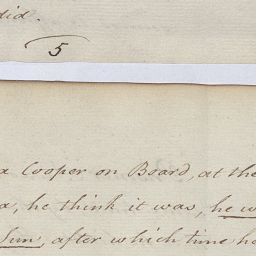 did.
5
a Cooper on Board, at the
a, he think it was, he w
Sun, after which time he